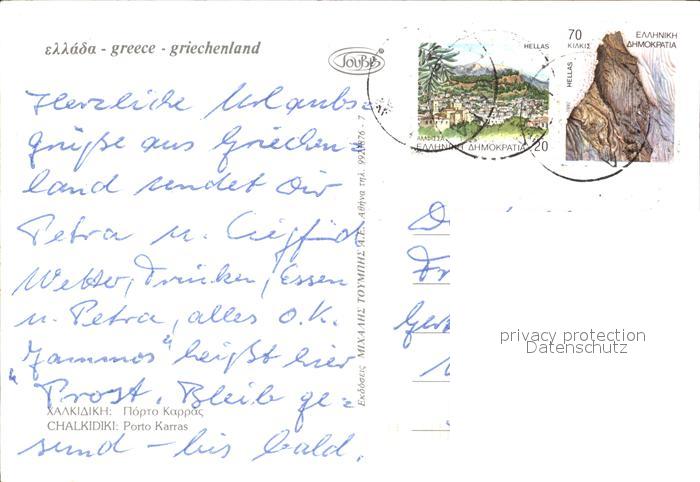 ελλάδα - greece - griechenland
Toubis
HELLAS
ΑΜΦΙΣΣΑ
ΕΛΛΗΝΙΚΗ ΔΗΜΟΚΡΑΤΙΑ 20
70
ΚΙΛΚΙΣ
ΕΛΛΗΝΙΚΗ
ΔΗΜΟΚΡΑΤΙΑ
HELLAS
Herzliche Urlaubs=
grüße aus Griechen=
land sendet Dir
Petra u. Siegfried
Wetter, Trinken, Essen
u. Petra, alles o.K.
"Jammas" heißt hier
"Prost. Bleib ge=
ΧΑΛΚΙΔΙΚΗ: Πόρτο Καρράς
CHALKIDIKI: Porto Karras
sund – bis bald.
Εκδόσεις ΜΙΧΑΛΗΣ ΤΟΥΜΠΗΣ Α.Ε. Αθήνα τηλ. 9923876 - 7
privacy protection
Datenschutz